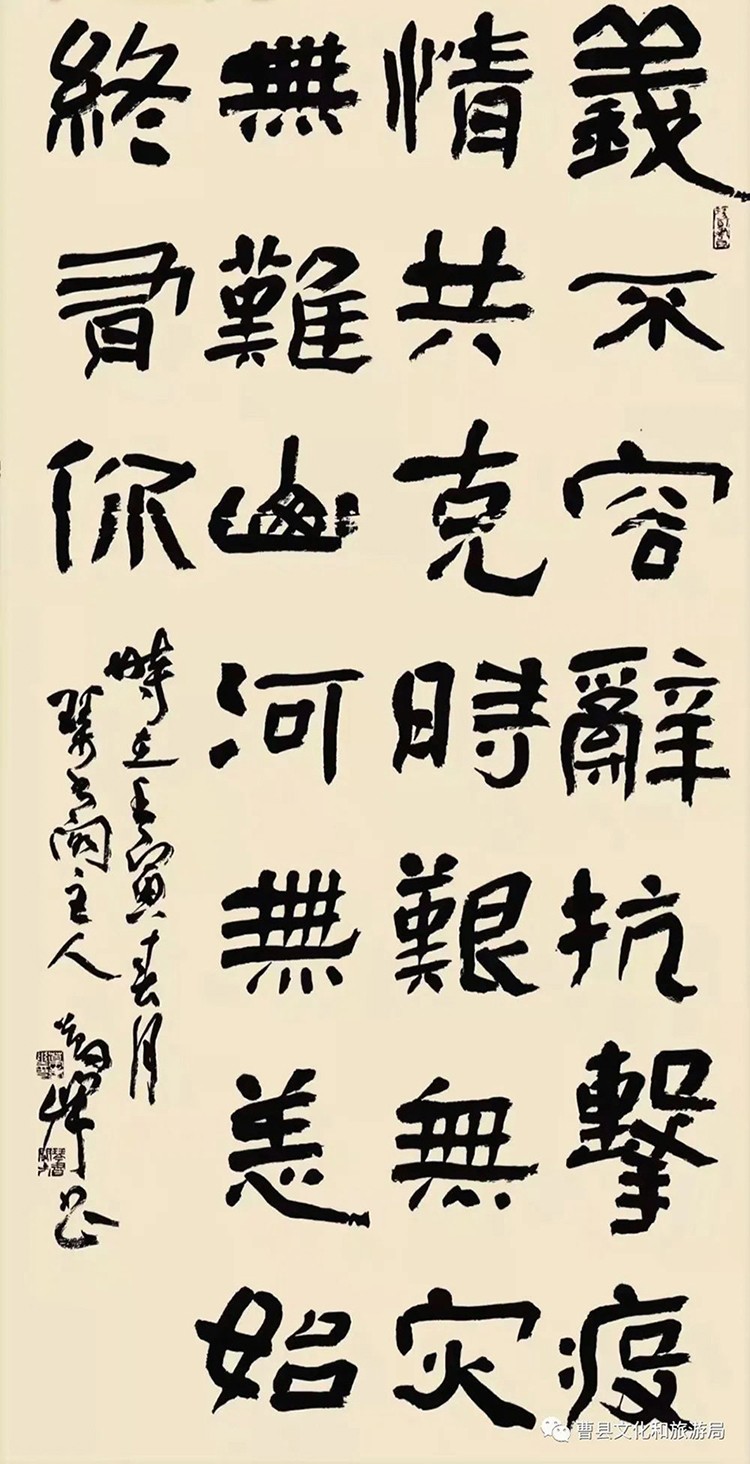 義不容辭抗擊疫
情共克時艱無灾
無難山河無恙始
終有你
時在壬寅春月
琴書閣主人
曹县文化和旅游局